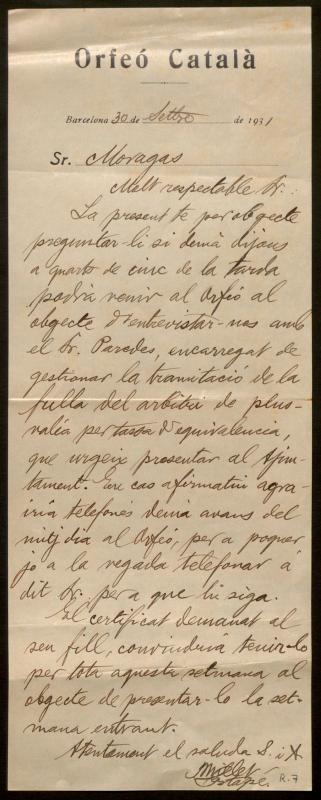 Orfeó Català
Barcelona 30 de Setbre de 1931
Sr. Moragas
Molt respectable Sr.:
La present te per obgecte
preguntar-li si demà dijous
a quarts de cinc de la tarda
podrà venir al Orfeó al
obgecte d'entrevistar-nos amb
el Sr. Paredes, encarregat de
gestionar la tramitació de la
fulla del arbitri de plus-
valía per tassa d'equivalencia,
que urgeix presentar al Ajun-
tament. En cas afirmatiu agra-
iría telefonés demà avans del
mitjdia al Orfeó, per a poguer
jo a la vegada telefonar á
dit Sr. per a que hi siga.
El certificat demanat al
seu fill, convindría tenir-lo
per tota aquesta setmana al
obgecte de presentar-lo la set-
mana entrant.
Atentament el saluda S. i A.
Millet
R.7